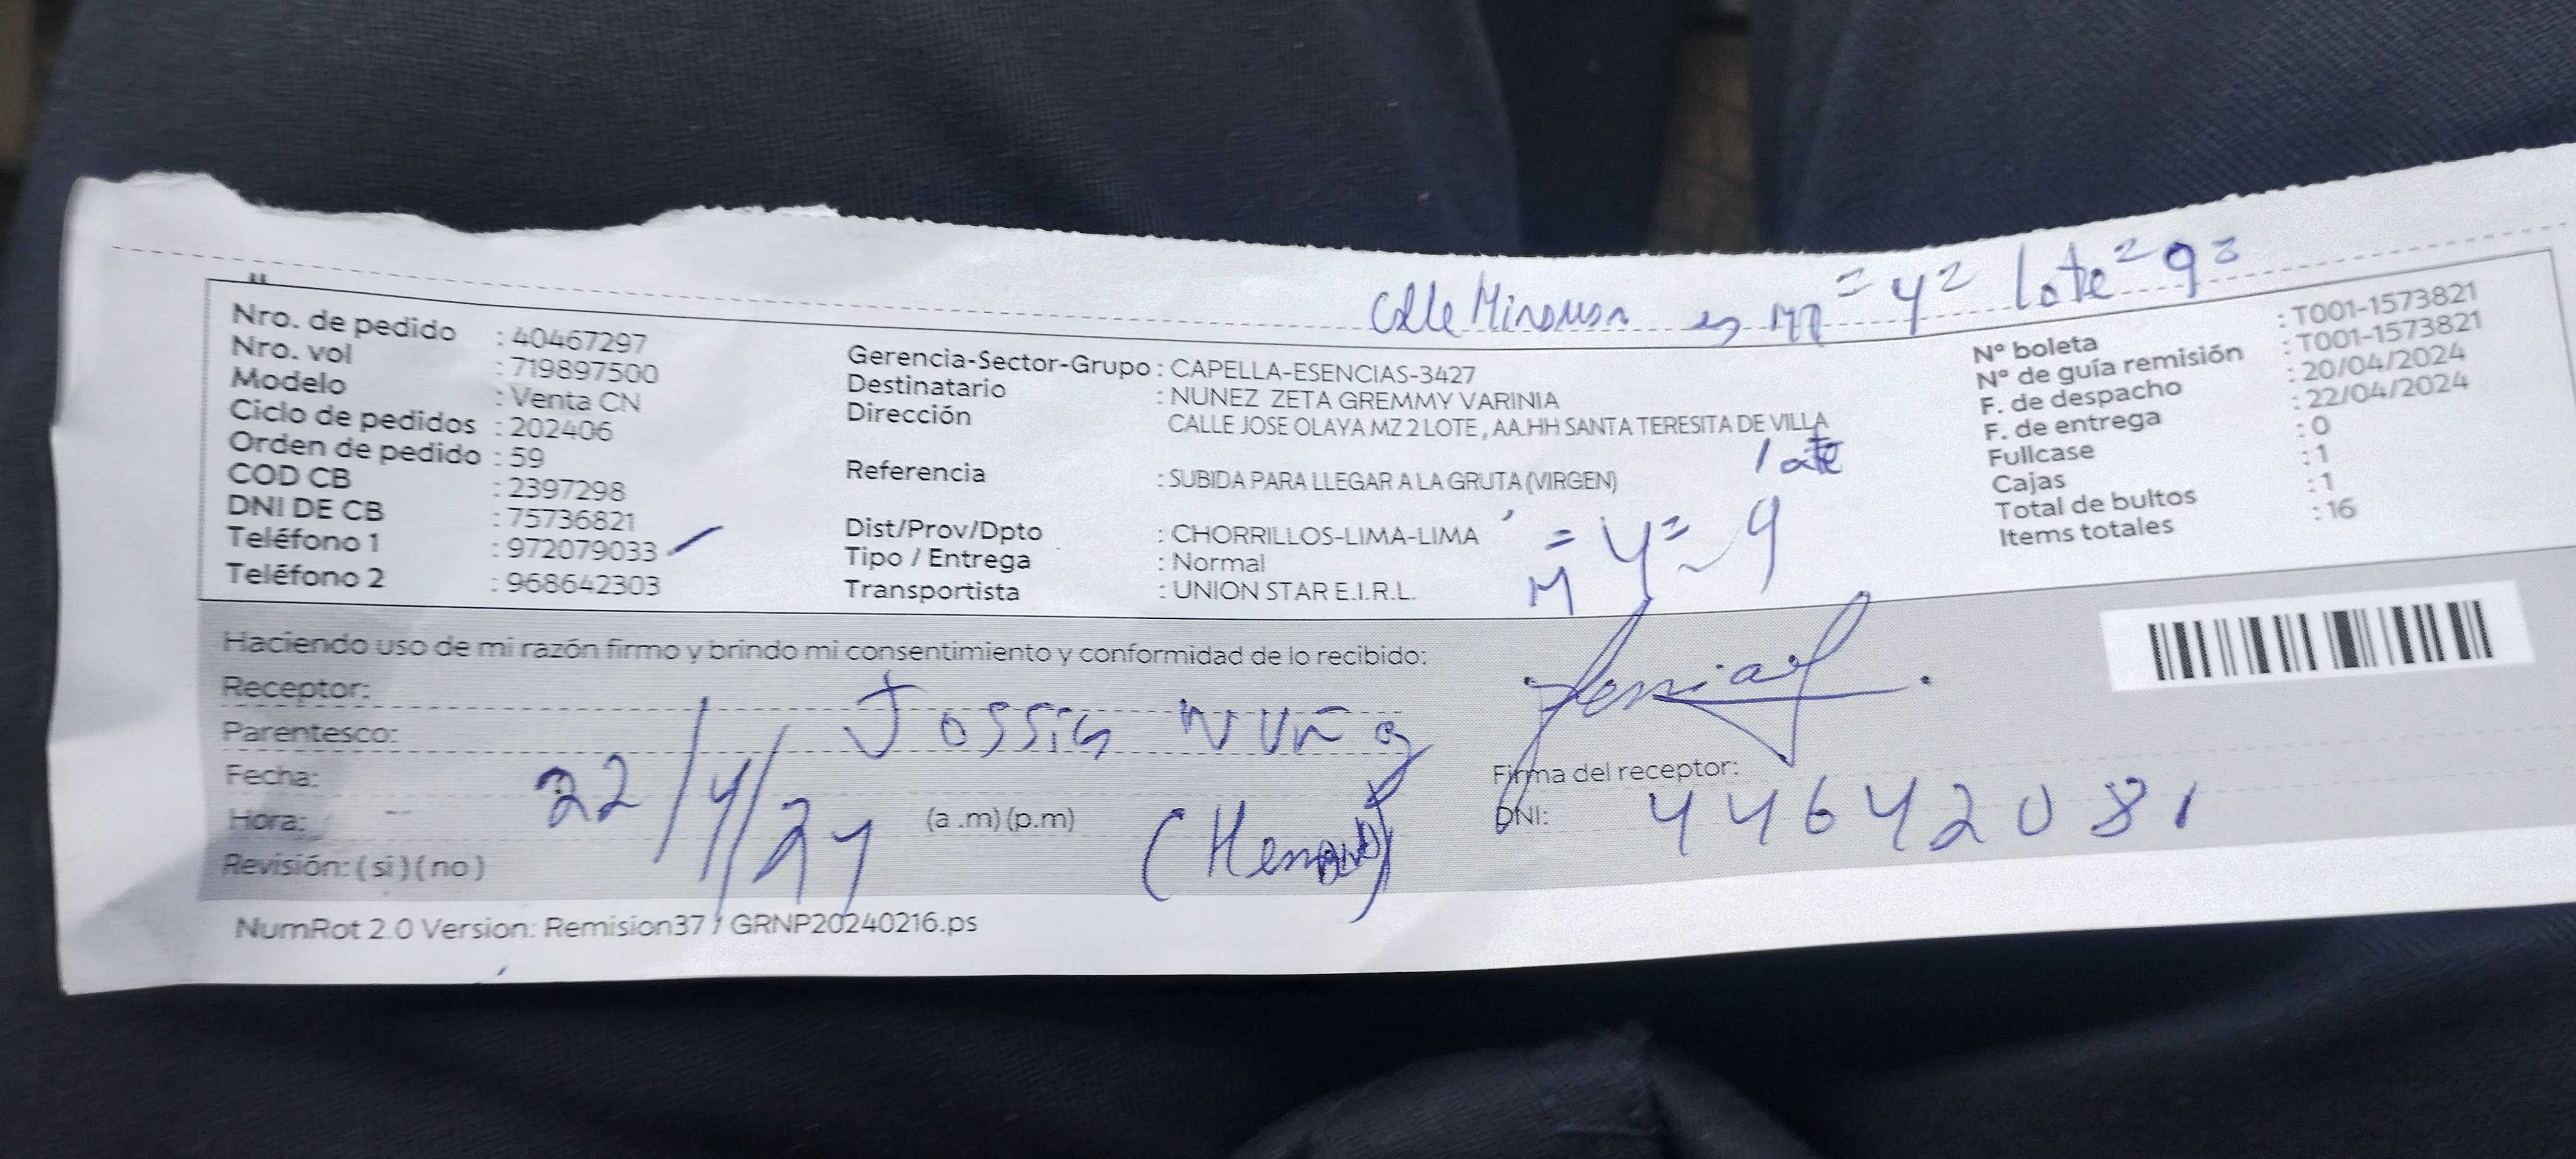 Calle Miramar es MZ = Y = lote = 9 =
Nro. de pedido : 40467297
Nro. vol : 719897500
Modelo : Venta CN
Ciclo de pedidos : 202406
Orden de pedido : 59
COD CB : 2397298
DNI DE CB : 75736821
Teléfono 1 : 972079033
Teléfono 2 : 968642303
Gerencia-Sector-Grupo : CAPELLA-ESENCIAS-3427
Destinatario : NUNEZ ZETA GREMMY VARINIA
Dirección CALLE JOSE OLAYA MZ 2 LOTE , AA.HH SANTA TERESITA DE VILLA
lote
Referencia : SUBIDA PARA LLEGAR A LA GRUTA (VIRGEN)
Dist/Prov/Dpto : CHORRILLOS-LIMA-LIMA
Tipo / Entrega : Normal
Transportista : UNION STAR E.I.R.L.
M = Y = 9
N° boleta : T001-1573821
N° de guía remisión : T001-1573821
F. de despacho : 20/04/2024
F. de entrega : 22/04/2024
Fullcase : 0
Cajas : 1
Total de bultos : 1
Items totales : 16
Haciendo uso de mi razón firmo y brindo mi consentimiento y conformidad de lo recibido:
Receptor:
Jossia Nuñez
Parentesco:
Fecha: 22/4/24
Hora: (a .m) (p.m)
Revisión: ( si ) ( no )
Firma del receptor:
DNI: 44642081
NumRot 2.0 Version: Remision37 / GRNP20240216.ps